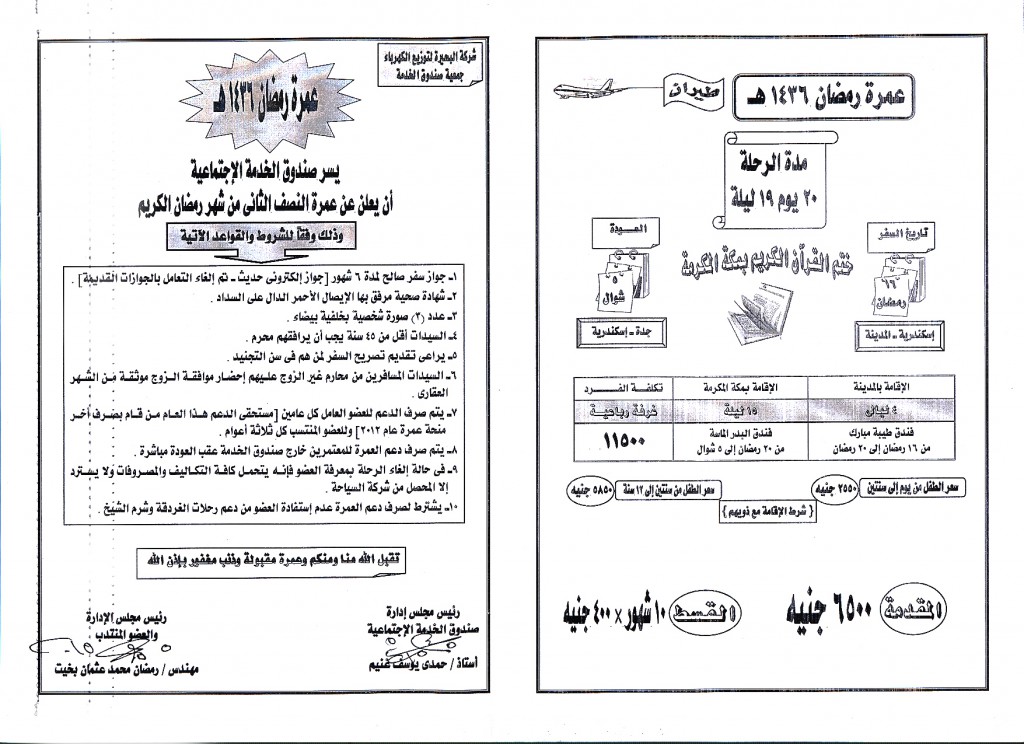 شركة البحيرة لتوزيع الكهرباء
جمعية صندوق الخدمة
عمرة رمضان ١٤٣٦ هـ
يسر صندوق الخدمة الإجتماعية
أن يعلن عن عمرة النصف الثانى من شهر رمضان الكريم
وذلك وفقاً للشروط والقواعد الآتية
١ـ جواز سفر صالح لمدة ٦ شهور [جواز إلكترونى حديث ـ تم إلغاء التعامل بالجوازات القديمة] .
٢ـ شهادة صحية مرفق بها الإيصال الأحمر الدال على السداد .
٣ـ عدد (٢) صورة شخصية بخلفية بيضاء .
٤ـ السيدات أقل من ٤٥ سنة يجب أن يرافقهم محرم .
٥ـ يراعى تقديم تصريح السفر لمن هم فى سن التجنيد .
٦ـ السيدات المسافرين من محارم غير الزوج عليهم إحضار موافقة الزوج موثقة من الشهر
العقارى .
٧ـ يتم صرف الدعم للعضو العامل كل عامين [مستحقى الدعم هذا العام من قام بصرف آخر
منحة عمرة عام ٢٠١٢] وللعضو المنتسب كل ثلاثة أعوام .
٨ـ يتم صرف دعم العمرة للمعتمرين خارج صندوق الخدمة عقب العودة مباشرة .
٩ـ فى حالة إلغاء الرحلة بمعرفة العضو فإنه يتحمل كافة التكاليف والمصروفات ولا يسترد
إلا المحصل من شركة السياحة .
١٠ـ يشترط لصرف دعم العمرة عدم إستفادة العضو من دعم رحلات الغردقة وشرم الشيخ .
تقبل الله منا ومنكم وعمرة مقبولة وذنب مغفور بإذن الله
رئيس مجلس إدارة
صندوق الخدمة الإجتماعية
أستاذ / حمدى يوسف غنيم
رئيس مجلس الإدارة
والعضو المنتدب
مهندس / رمضان محمد عثمان بخيت
عمرة رمضان ١٤٣٦ هـ
طيران
مدة الرحلة
٢٠ يوم ١٩ ليلة
تاريخ السفر
١٦
رمضان
إسكندرية ـ المدينة
ختم القرآن الكريم بمكة المكرمة
العودة
٥
شوال
جدة ـ إسكندرية
الإقامة بالمدينة الإقامة بمكة المكرمة تكلفة الفرد
٤ ليالى ١٥ ليلة غرفة رباعية
فندق طيبة مبارك فندق البدر الماسة ١١٥٠٠
من ١٦ رمضان إلى ٢٠ رمضان من ٢٠ رمضان إلى ٥ شوال
سعر الطفل من يوم إلى سنتين ٢٥٥٠ جنيه سعر الطفل من سنتين إلى ١٢ سنة ٥٨٥٠ جنيه
{ شرط الإقامة مع ذويهم }
المقدمة ٦٥٠٠ جنيه القسط ١٠ شهور × ٤٠٠ جنيه